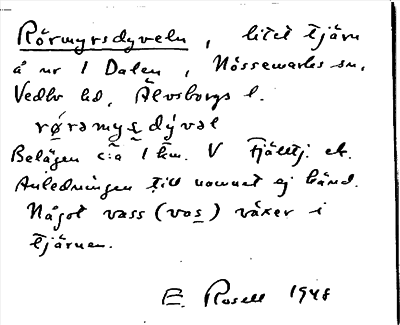 Rörmyrsdyveln, litet tjärn
å nr 1 Dalen, Nössemarks sn,
Vedbo hd, Älvsborgs l.
rø̨rəmyṣdývəl
Belägen c:a 1 km. V Fjälltj. et.
Anledningen till namnet ej känd.
Något vass (vas) växer i
tjärnen.
E. Rosell 1948